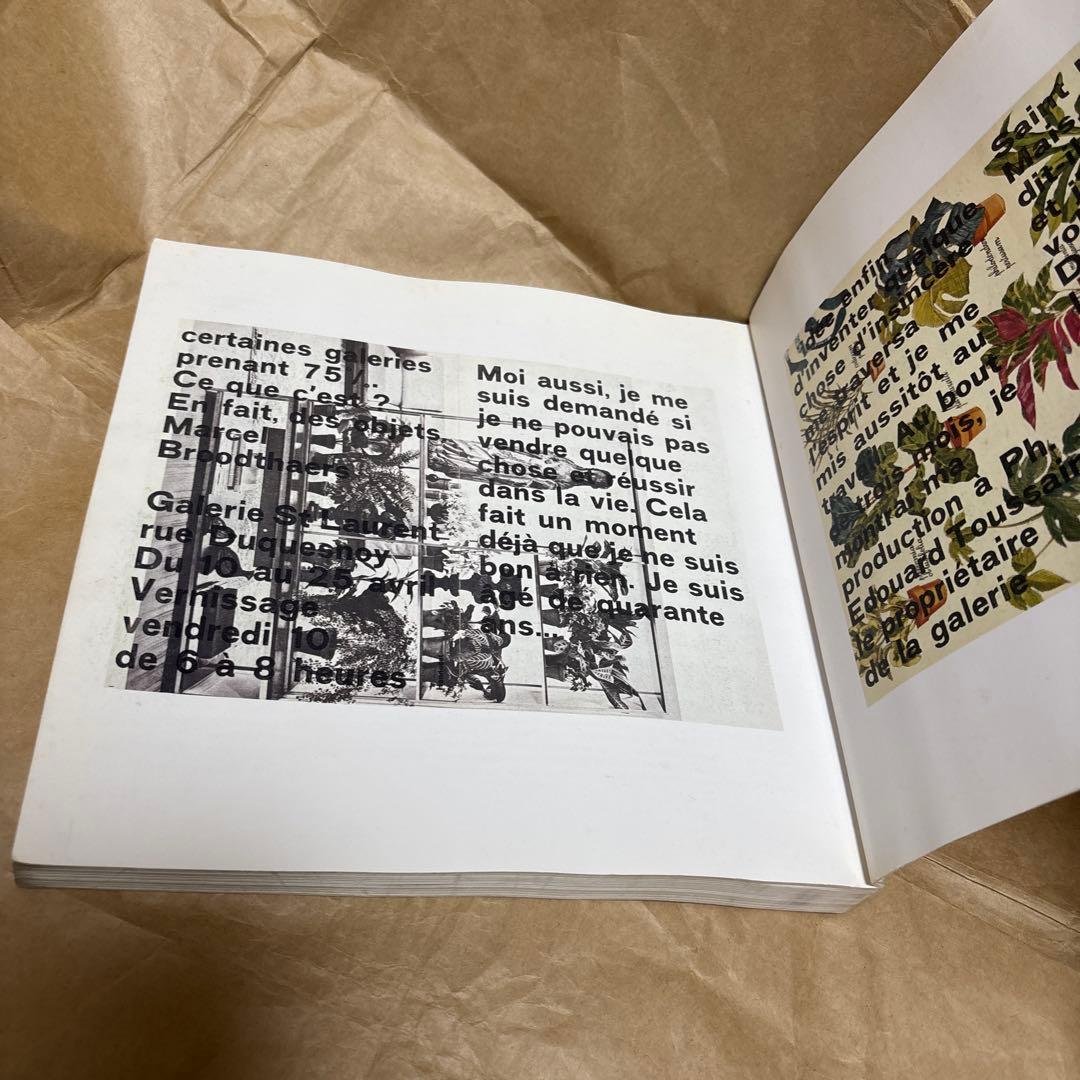 certaines galeries
prenant 75 /..
Ce que c'est ?
En fait, des objets.
Marcel
Broodthaers
Galerie St Laurent
rue Duquesnoy
Du 10 au 25 avril
Vernissage
vendredi 10
de 6 à 8 heures
Moi aussi, je me
suis demandé si
je ne pouvais pas
vendre quelque
chose et réussir
dans la vie. Cela
fait un moment
déjà que je ne suis
bon à rien. Je suis
âgé de quarante
ans...
idée enfin
d'inventer quelque
chose d'insincère
me traversa
l'esprit et je me
mis aussitôt au
travail. Au bout
de trois mois, je
montrai ma
production à Ph.
Edouard Toussaint
le propriétaire
de la galerie
Saint
Mais,
dit-il
et j
vo
D